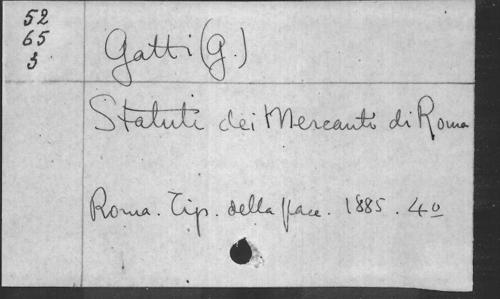 52
65
3
Gatti (G.)
Statuti dei Mercanti di Roma
Roma. Tip. della Pace. 1885. 4º